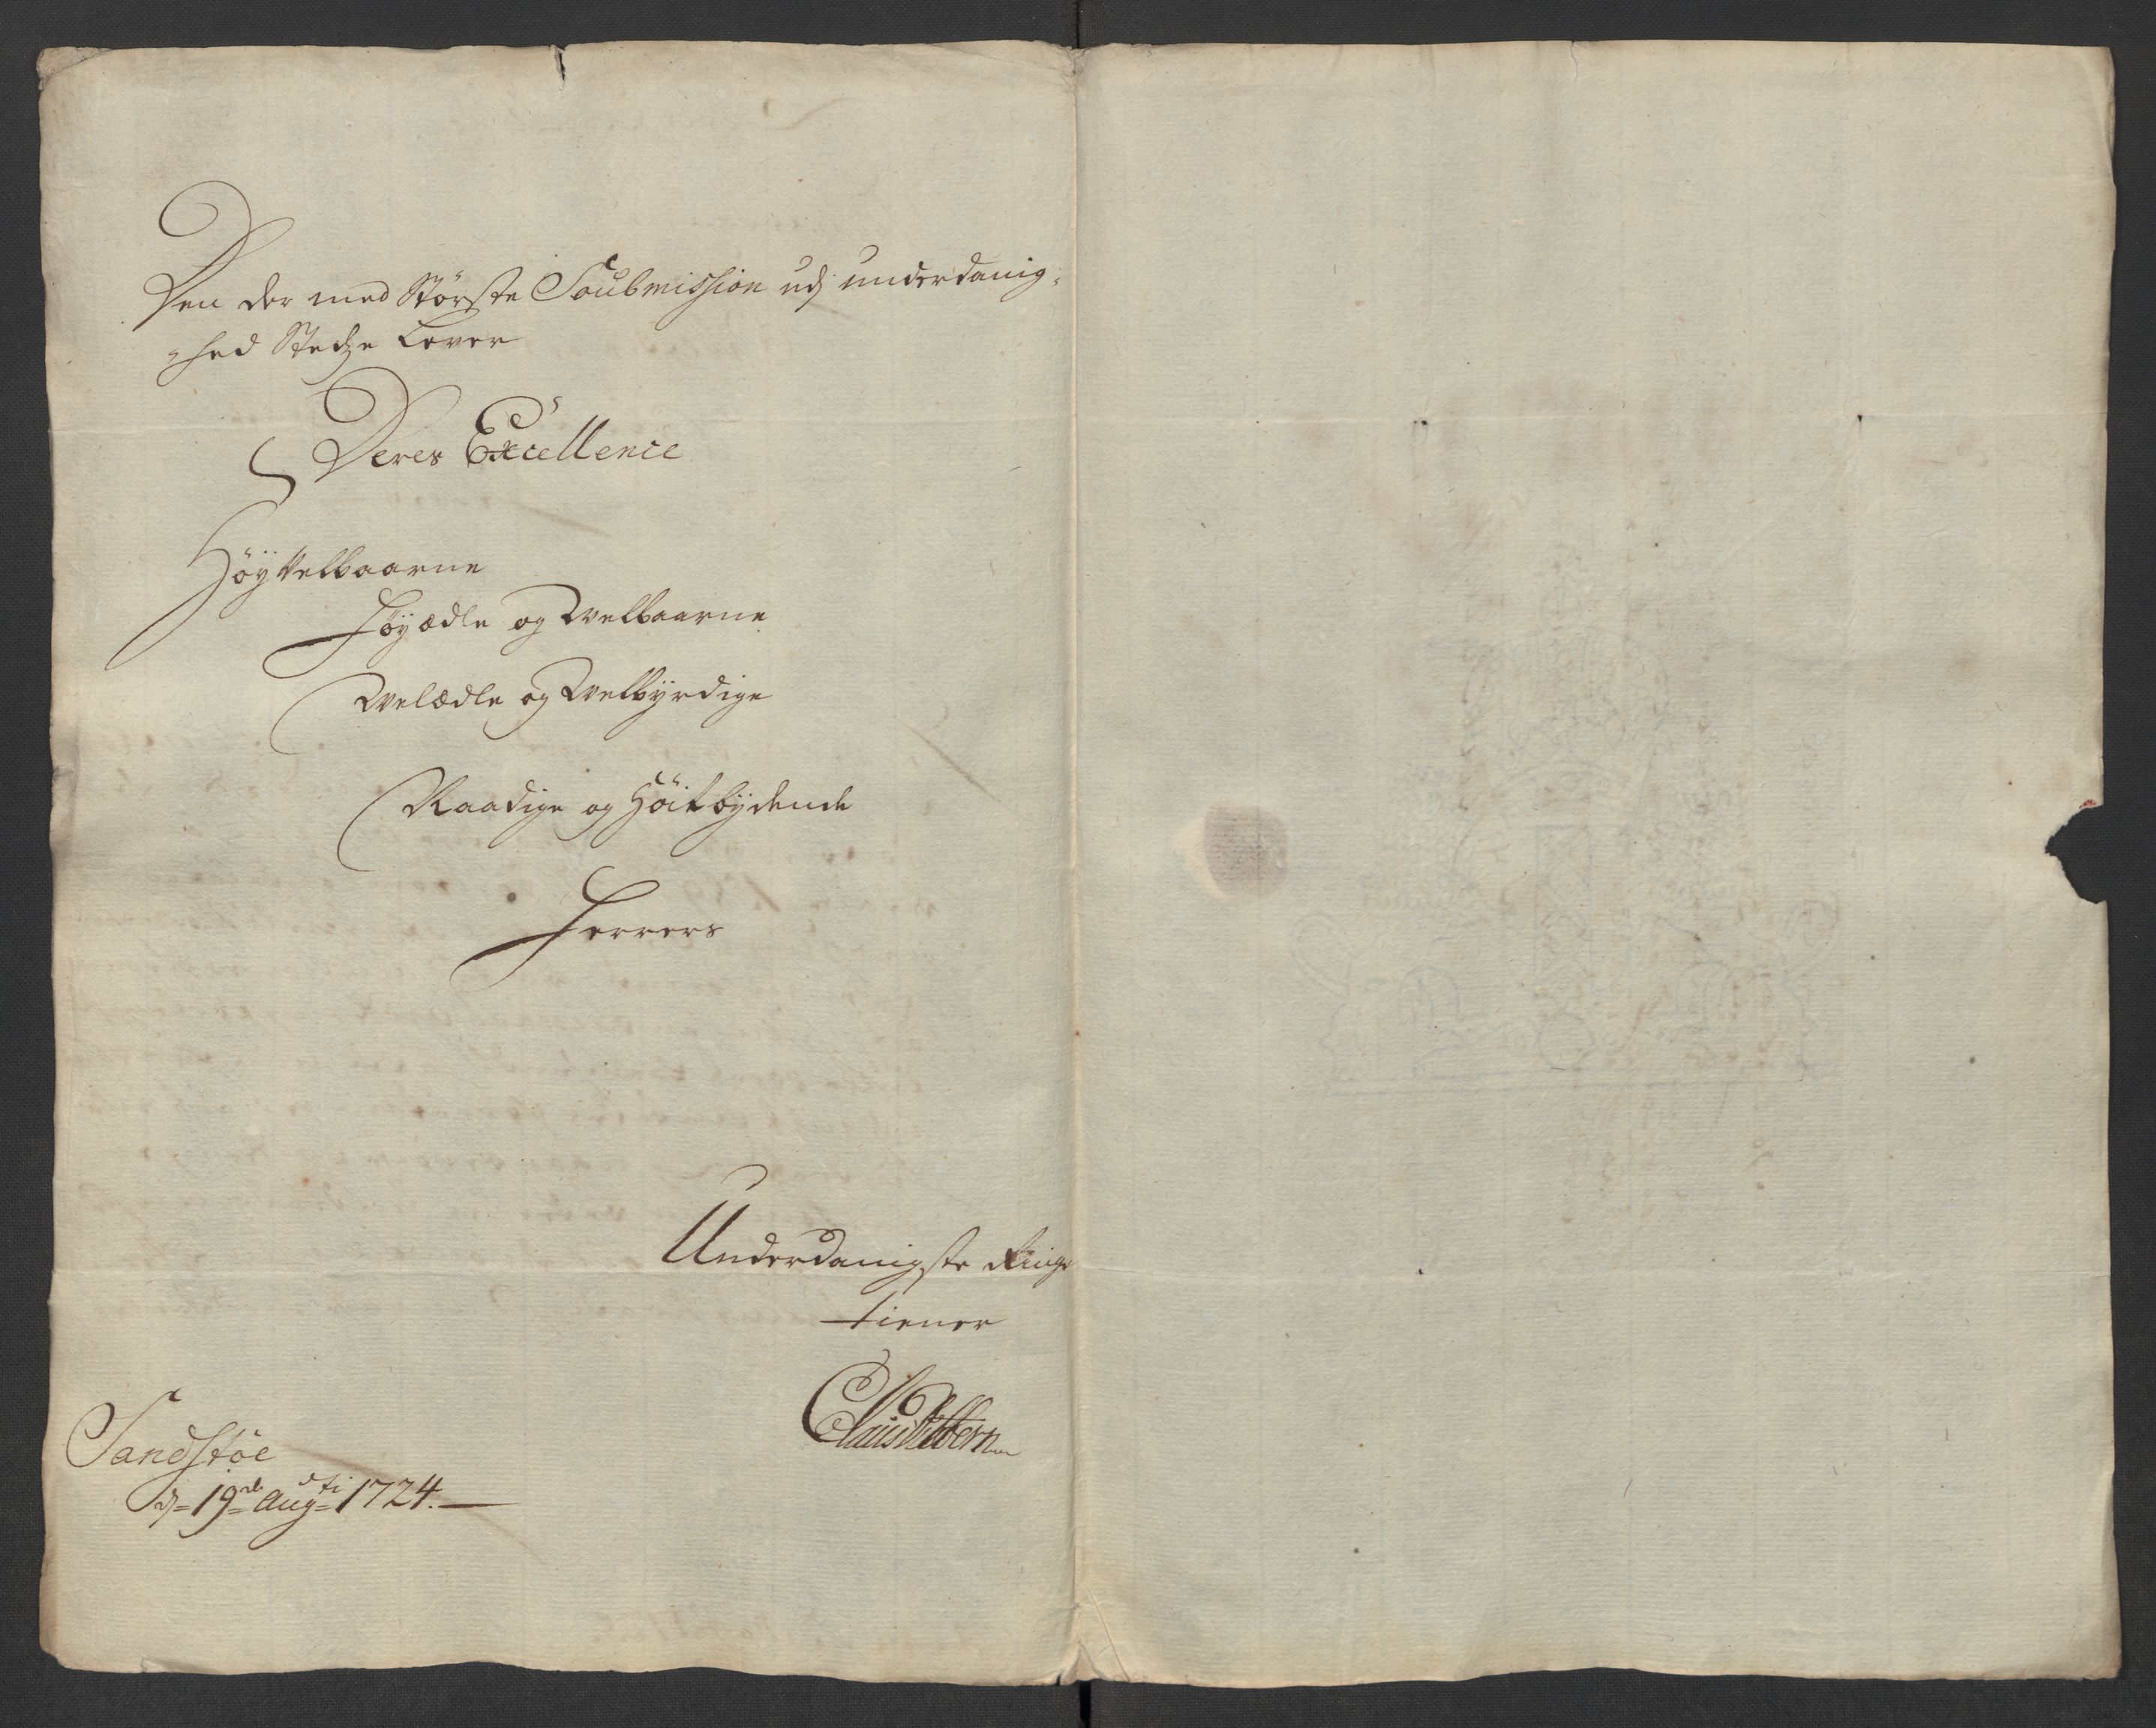 Den der med Störste Soubmission udj underdanig=
=hed Stedze Lever
Deres Excellence
Höyvelbaarne
Höyædle og Welbaarne
Welædle og Welbyrdige
Naadige og Höitbydende
Herrers
Underdanigste Ringe
tiener
Sandstöe
d= 19de Augusti 1724.